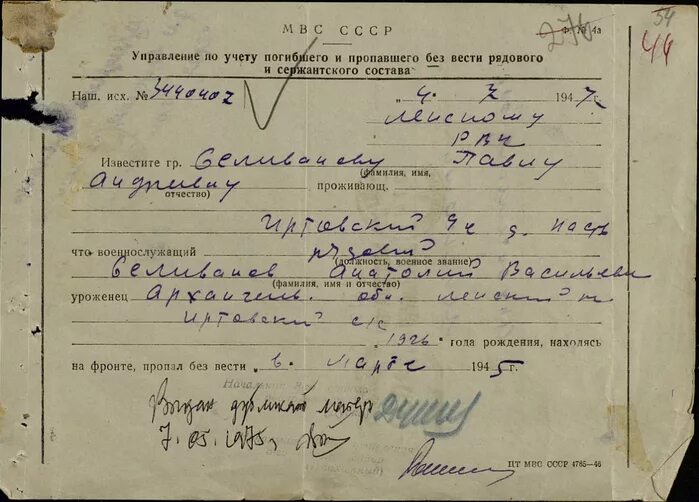 54
МВС СССР
276
Ф. № 4а
44
Управление по учету погибшего и пропавшего без вести рядового
и сержантского состава
Наш. исх. № 3440402
„4“ 7 1947г.
Ленскому
РВК
Известите гр. Селиванову Павлу
(фамилия, имя,
Андреевичу проживающ.
отчество)
Иртовский д.
что военнослужащий рядовой
(должность, военное звание)
Селиванов Анатолий Васильевич
(фамилия, имя и отчество)
уроженец Архангельс. обл. Ленский
Иртовский с/с
1926 года рождения, находясь
на фронте, пропал без вести в марте 1945г.
Начальник
Выдан дубликат матери
7.05.1975г.
ЦТ МВС СССР 4765—46